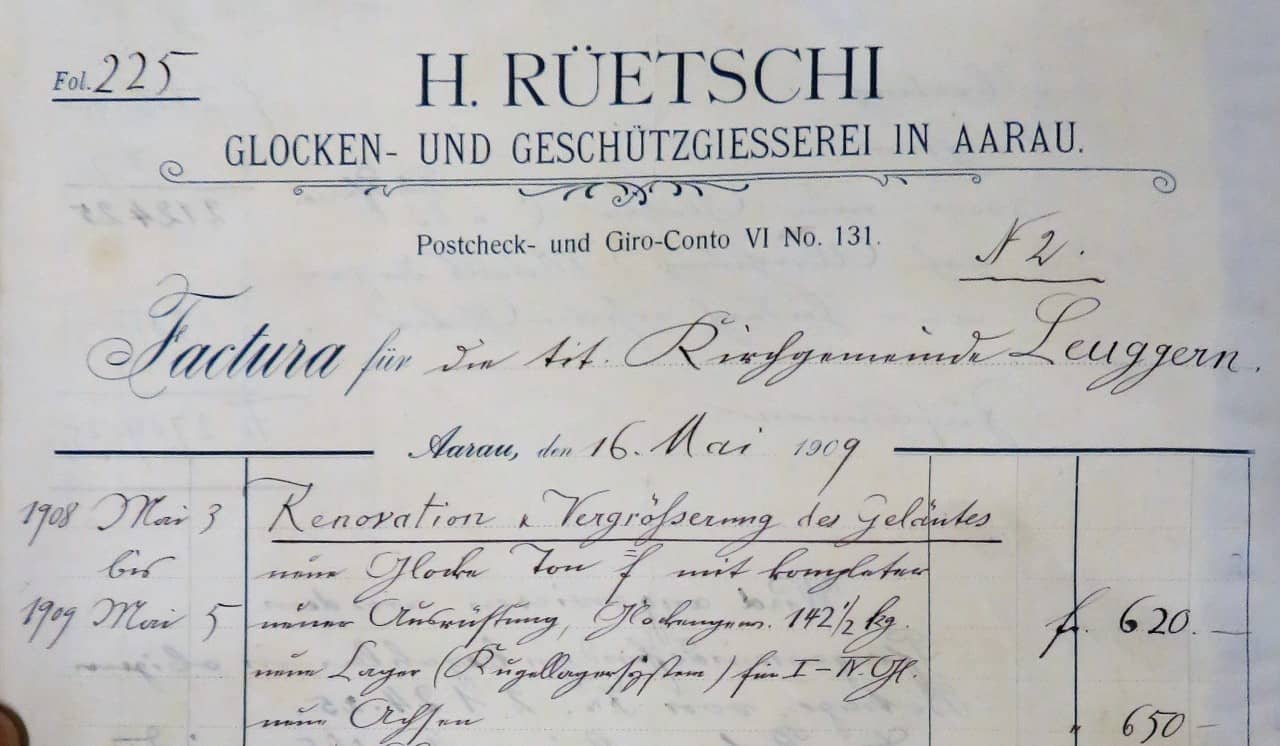 Fol. 225
H. RÜETSCHI
GLOCKEN- UND GESCHÜTZGIESSEREI IN AARAU.
Postcheck- und Giro-Conto VI No. 131.
N 2.
Factura für die tit. Kirchgemeinde Leuggern.
Aarau, den 16. Mai 1909
1908 Mai 3 Renovation & Vergrösserung des Geläutes
bis neue Glocke Ton f mit kompleter
1909 Mai 5 neuer Ausrüstung, Glockengew. 142 1/2 kg. fr. 620.—
neue Lager (Kugellagersystem) für I–IV. Gl.
neue Achsen " 650 —